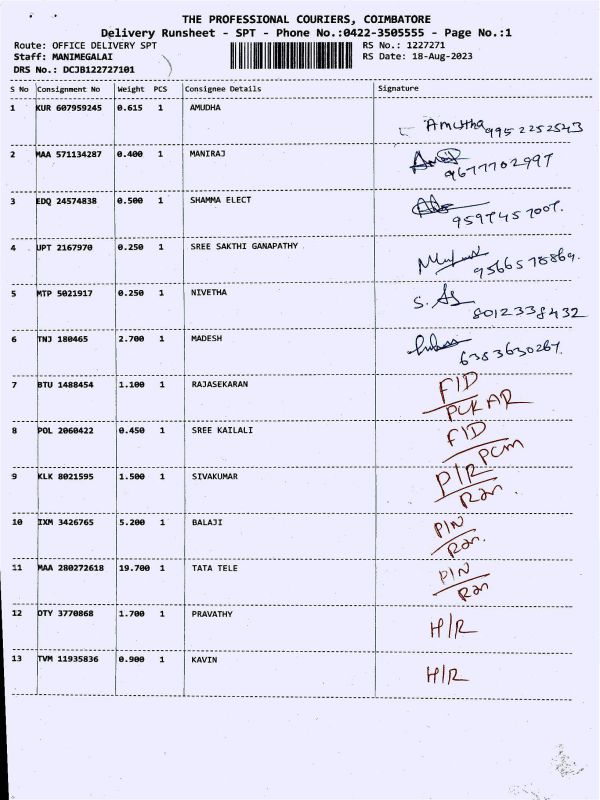 THE PROFESSIONAL COURIERS, COIMBATORE
Delivery Runsheet - SPT - Phone No.:0422-3505555 - Page No.:1
Route: OFFICE DELIVERY SPT RS No.: 1227271
Staff: MANIMEGALAI RS Date: 18-Aug-2023
DRS No.: DCJB122727101
S No Consignment No Weight PCS Consignee Details Signature
1 KUR 607959245 0.615 1 AMUDHA
Amutha 9952252543
2 MAA 571134287 0.400 1 MANIRAJ
9677702997
3 EDQ 24574838 0.500 1 SHAMMA ELECT
9597457007.
4 UPT 2167970 0.250 1 SREE SAKTHI GANAPATHY
9566578869.
5 MTP 5021917 0.250 1 NIVETHA
S.
8012338432
6 TNJ 180465 2.700 1 MADESH
6383630267.
7 BTU 1488454 1.100 1 RAJASEKARAN FID
8 POL 2060422 0.450 1 SREE KAILALI FID
PCM
9 KLK 8021595 1.500 1 SIVAKUMAR P/R
Ran.
10 IXM 3426765 5.200 1 BALAJI PIN
Ran.
11 MAA 280272618 19.700 1 TATA TELE PIN
Ran
12 OTY 3770868 1.700 1 PRAVATHY H/R
13 TVM 11935836 0.900 1 KAVIN H/R